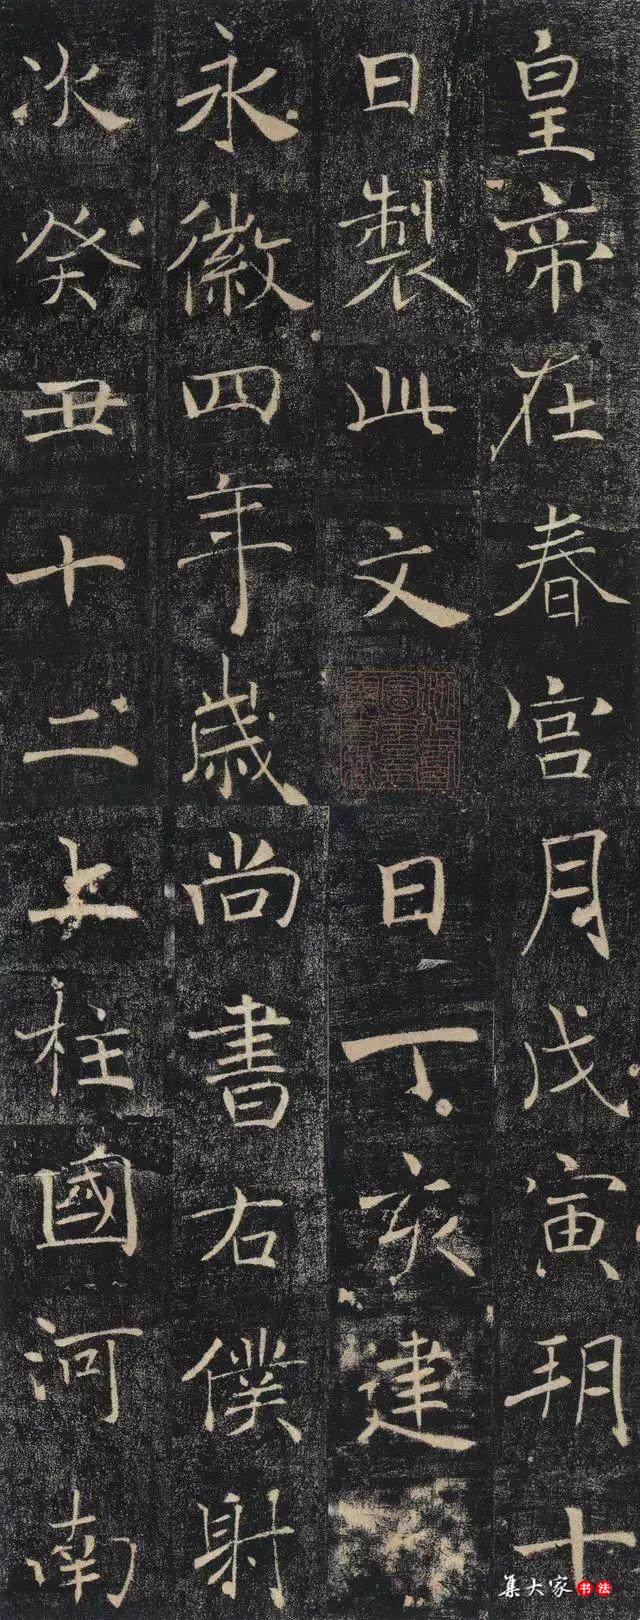 皇帝在春宫
日製此文
永徽四年歲
次癸丑十二
月戊寅朔十
日丁亥建
尚書右僕射
上柱國河南
集大家书法